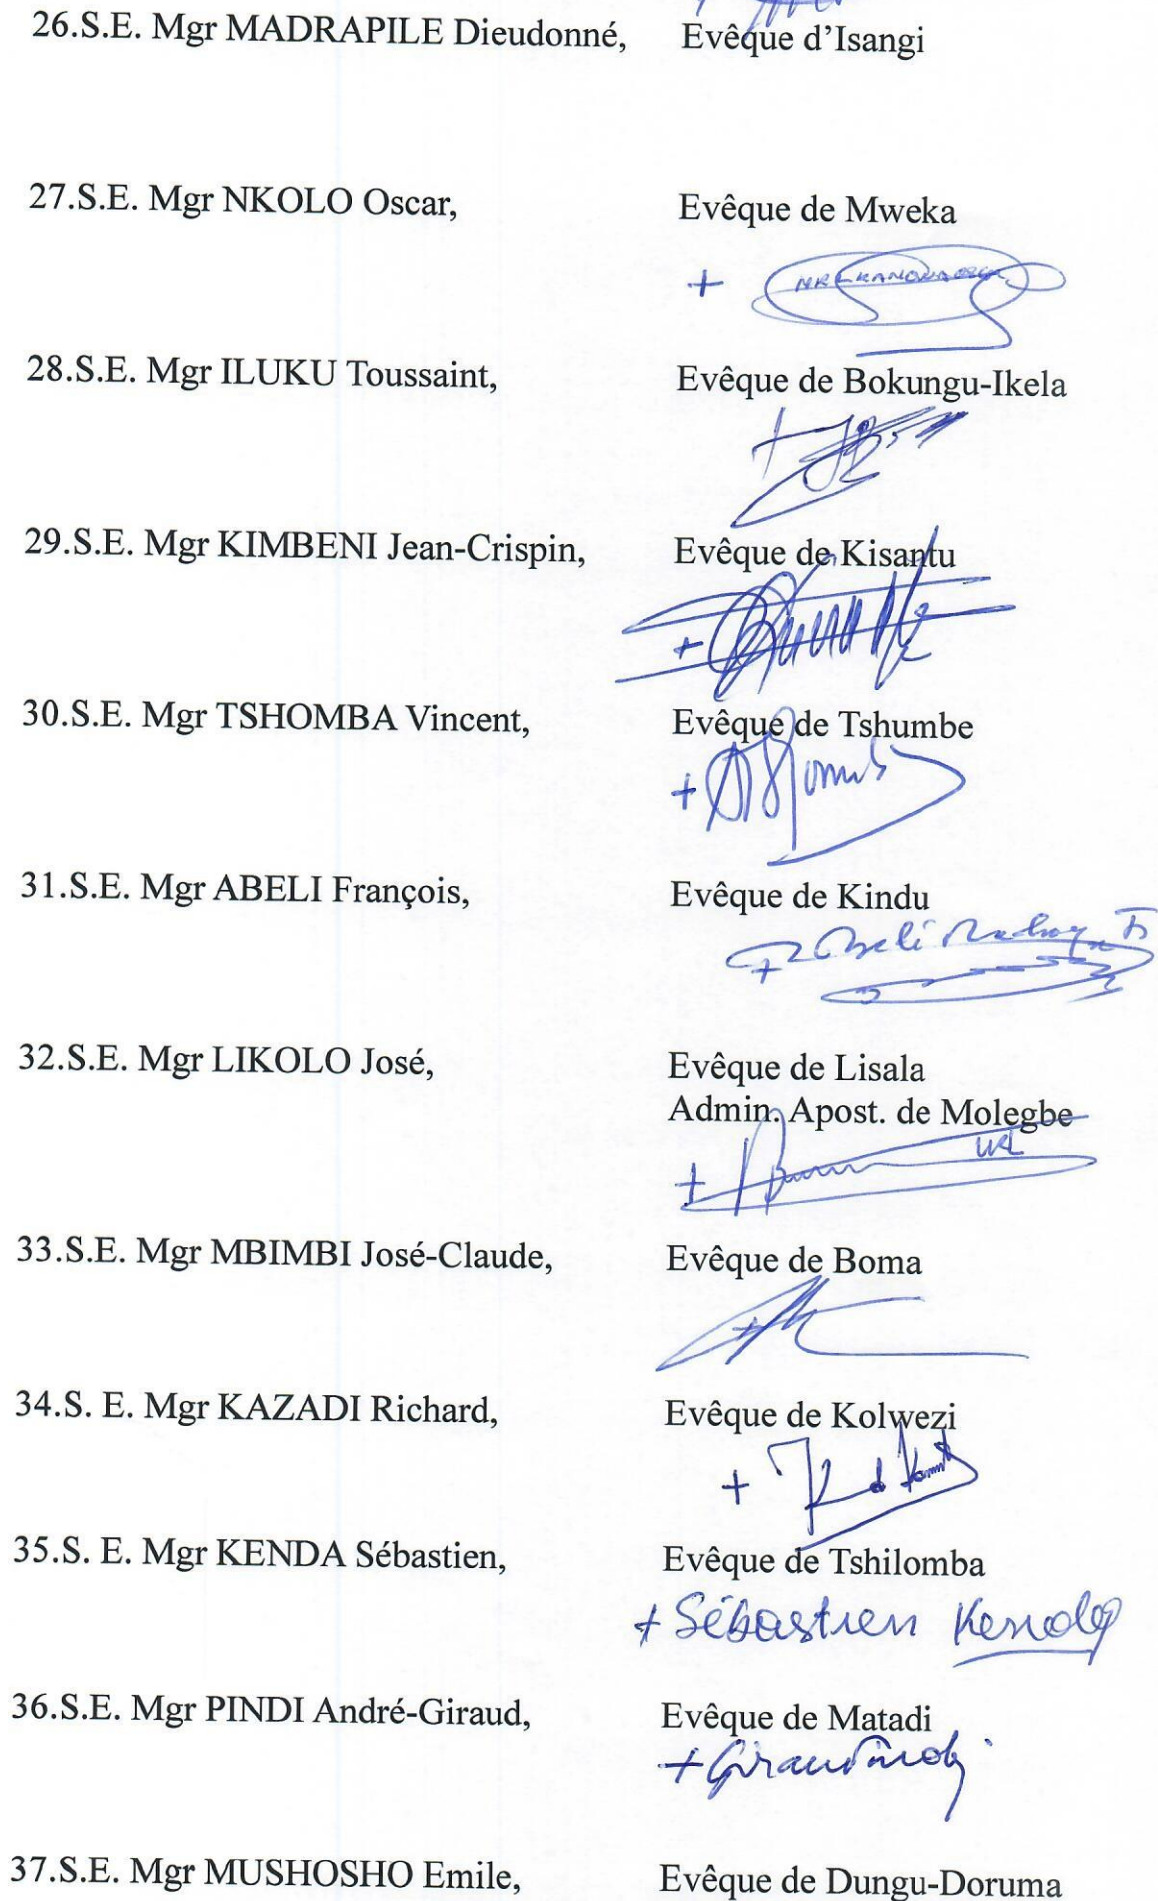 26.S.E. Mgr MADRAPILE Dieudonné, Evêque d'Isangi
27.S.E. Mgr NKOLO Oscar, Evêque de Mweka
+
28.S.E. Mgr ILUKU Toussaint, Evêque de Bokungu-Ikela
+
29.S.E. Mgr KIMBENI Jean-Crispin, Evêque de Kisantu
+
30.S.E. Mgr TSHOMBA Vincent, Evêque de Tshumbe
+
31.S.E. Mgr ABELI François, Evêque de Kindu
+
32.S.E. Mgr LIKOLO José, Evêque de Lisala
Admin. Apost. de Molegbe
+
33.S.E. Mgr MBIMBI José-Claude, Evêque de Boma
+
34.S. E. Mgr KAZADI Richard, Evêque de Kolwezi
+
35.S. E. Mgr KENDA Sébastien, Evêque de Tshilomba
+ Sébastien Kenda
36.S.E. Mgr PINDI André-Giraud, Evêque de Matadi
+
37.S.E. Mgr MUSHOSHO Emile, Evêque de Dungu-Doruma